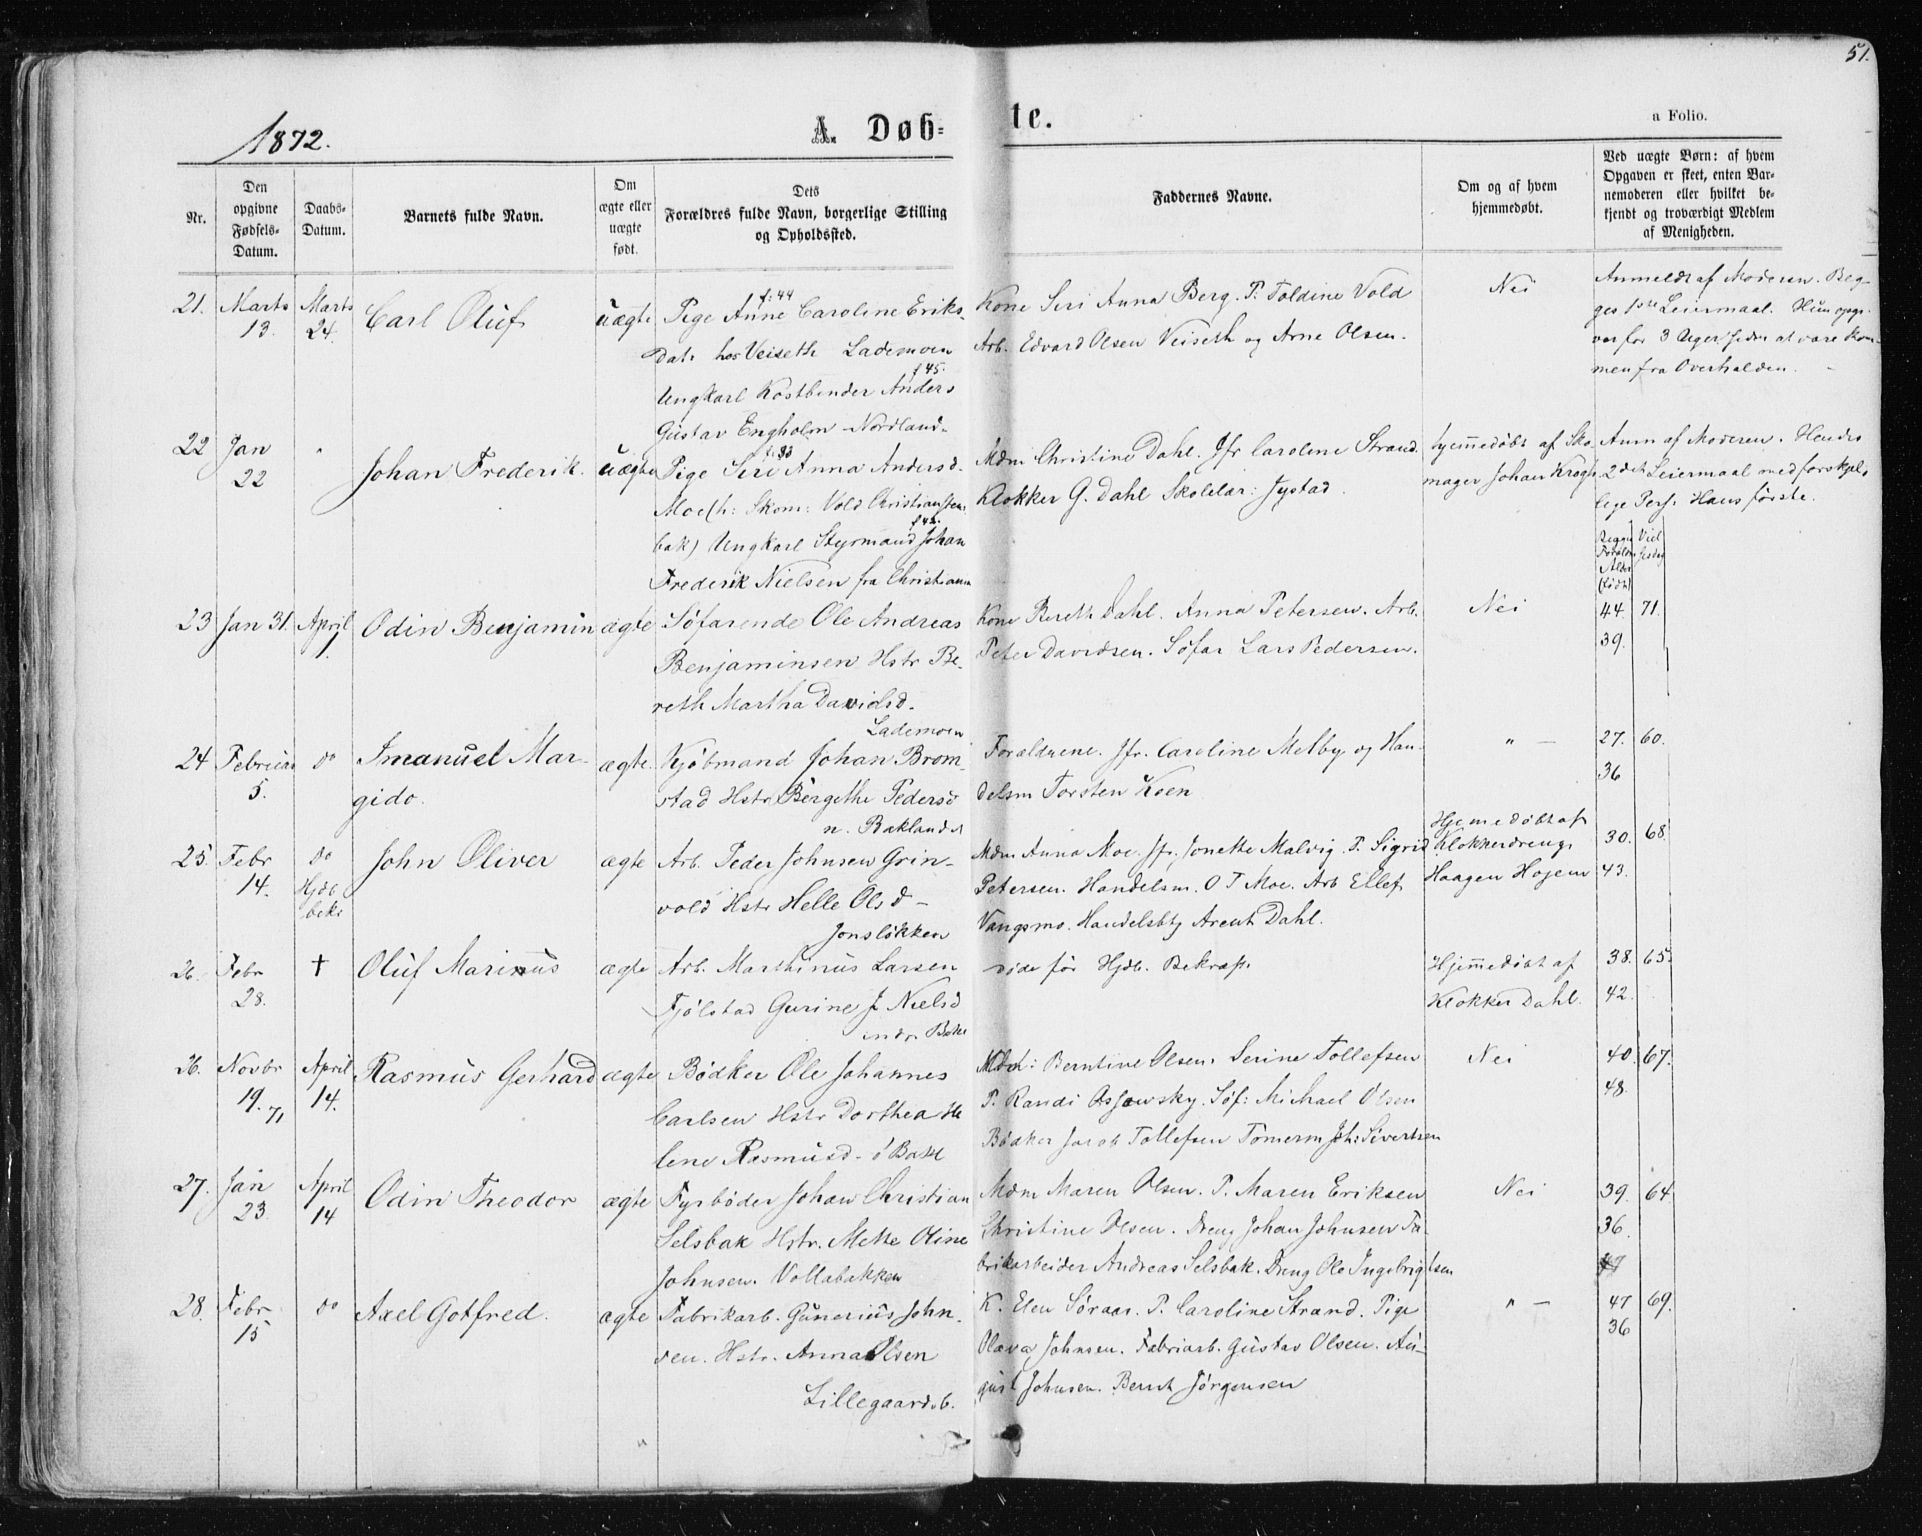 51.
1872.
A. Døbte.
a Folio.
Nr.
Den opgivne Fødsels-Datum.
Daabs-Datum.
Barnets fulde Navn.
Om ægte eller uægte født.
Dets Forældres fulde Navn, borgerlige Stilling og Opholdssted.
Faddernes Navne.
Om og af hvem hjemmedøbt.
Ved uægte Børn: af hvem Opgaven er skeet, enten Barnemoderen eller hvilket bekjendt og troværdigt Medlem af Menigheden.
21. Marts 13. Marts 24. Carl Oluf uægte
f: 44
Pige Anne Caroline Eriks-
Datr hos Veiseth Lademoen
f 45.
Ungkarl Kostbinder Anders
Gustav Engholm - Nordland.
Kone Siri Anna Berg. P. Toldine Vold
Arb. Edvard Olsen Veiseth og Arne Olsen.
Nei
Anmeldt af Moderen. Beg-
ges 1ste Leiermaal. Hun opgi-
ver for 3 Uger siden at være kom-
men fra Overhalden.
22 Jan 22 " Johan Frederik. uægte
f. 33
Pige Siri Anna Andersd.
Moe (h: Skom: Vold Christianssen
f 42.
bak) Ungkarl Styrmand Johan
Frederik Nielsen fra Christiania
Mdm Christine Dahl. Jfr Caroline Strand.
Klokker G. Dahl Skolelær: Jystad.
hjemmedøbt af Sko
mager Johan Krogh
Anm af Moderen. Hendes
2det Leiermaal med forskjel-
lige Pers. Hans første.
Begge Forældres Alder (født)
Viel sesdag
23 Jan 31. April 1 Odin Benjamin ægte
Søfarende Ole Andreas
Benjaminsen Hstr Be-
reth Martha Davidsd.
Lademoen
Kone Bereth Dahl. Anna Petersen. Arb.
Peter Davidsen. Søfar Lars Pedersen.
Nei
44. 71.
39.
24 Februar 5. do Imanuel Mar-
gido. ægte.
Kjøbmand Johan Brom-
stad Hstr Bergethe Pedersd
n. Baklandet
Forældrene. Jfr. Caroline Melby og Han-
delsm Torsten Koen
" —
27. 60.
36
25. Febr 14. do Hjdb. bekr John Oliver ægte
Arb. Peder Johnsen Grin-
vold Hstr Helle Olsd -
Jonsløkken
Mdm Anna Moe. Jfr. Jonette Malvig. P. Sigrid
Petersen. Handelsm. O T Moe. Arb Ellef
Vangsmo. Handelsbtj Arent Dahl.
Hjemmedøbt af
Klokkerdreng.
Haagen Hojem
30. 68.
43.
26. Febr 28. † Oluf Marinus ægte
Arb. Marthinus Larsen
Fjølstad Gurine J Nielsd
indr. Bakl
døde før Hjdb. Bekræft.
Hjemmedøbt af
Klokker Dahl.
38. 65.
42.
26. Novbr 19. 71 April 14. Rasmus Gerhard ægte
Bødker Ole Johannes
Carlsen Hstr Dorthea He
lene Rasmusd - ø Bakl
Mdm: Berntine Olsen. Serine Tollefsen
P. Randi Ossowsky. Søf: Michael Olsen
Bødker Jacob Tollefsen Tømerm Joh: Sivertsen
Nei
40. 67.
48.
27. Jan 23. April 14 Odin Theodor ægte
Fyrbøder Johan Christian
Selsbak Hstr. Mette Oline
Johnsen. Vollabakken
Mdm Maren Olsen. P. Maren Eriksen
Christine Olsen. Dreng Johan Johnsen Fa-
brikarbeider Andreas Selsbak. Dreng Ole Ingebrigtsen
Nei
39. 64
36.
47
28. Febr. 15 do Axel Gotfred. ægte
Fabrikarb. Gunerius John-
sen. Hstr. Anna Olsen
Lillegaardsb.
K. Elen Søraas. P. Caroline Strand. Pige
Olava Johnsen. Fabriarb. Gustav Olsen. Au-
gust Johnsen. Bernt Jørgensen
" —
47 69.
36